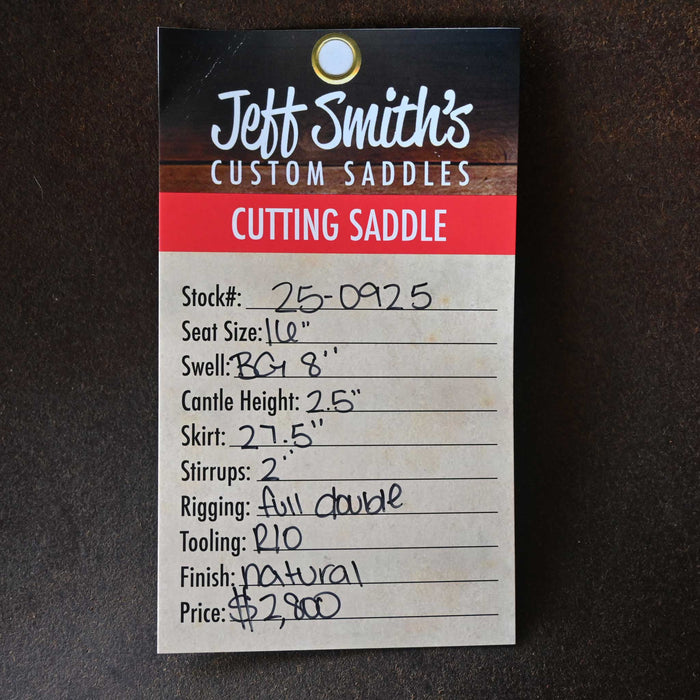 Jeff Smith's
CUSTOM SADDLES
CUTTING SADDLE
Stock#: 25-0925
Seat Size: 16"
Swell: BG 8"
Cantle Height: 2.5"
Skirt: 27.5"
Stirrups: 2"
Rigging: full double
Tooling: RIO
Finish: natural
Price: $2,800